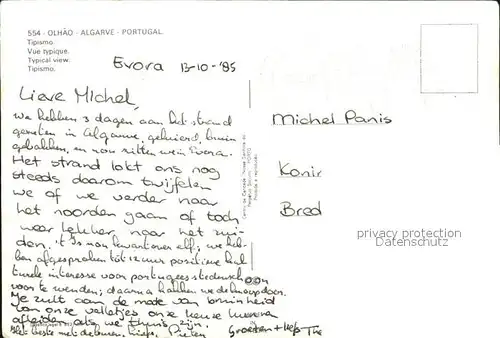 554 - OLHÃO - ALGARVE - PORTUGAL
Tipismo.
Vue typique.
Typical view.
Tipismo.
Evora 13-10-'85
Lieve Michel,
we hebben 3 dagen aan het strand
genoten in Algarve, geluierd, bruin
gebakken, en nou zitten we in Evora.
Het strand lokt ons nog
steeds daarom twijfelen
we of we verder naar
het noorden gaan of toch
weer lekker naar het zui-
den. 't Is nou kwart over elf, we heb-
ben afgesproken tot 12 uur positieve kul
turele interesse voor portugees stedenschoon
voor te wenden; daarna hakken we de knoop door.
Je zult aan de mate van bruinheid
van onze velletjes onze keuze kunnen
afleiden als we thuis zijn.
Het beste met de buren, liefs, Pieten
Groeten + liefs
Michel Panis
Konir
Bred
protected by photopanis
Datenschutz